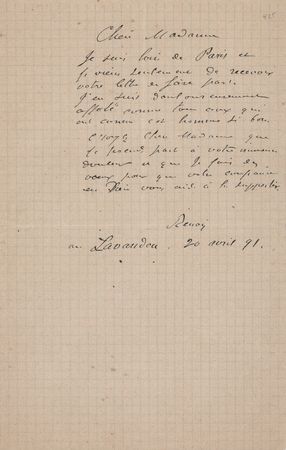 425
Cher Madame
Je suis loin de Paris et
je viens seulement de recevoir
votre lettre de faire part.
J'en suis douloureusement
affecté comme tous ceux qui
ont connu cet homme si bon
Croyez Cher Madame que
je prend part à votre immense
douleur et que Je fais des
vœux pour que votre confiance
en Dieu vous aide à le supporter
Renoir
au Lavandou. 20 avril 91.